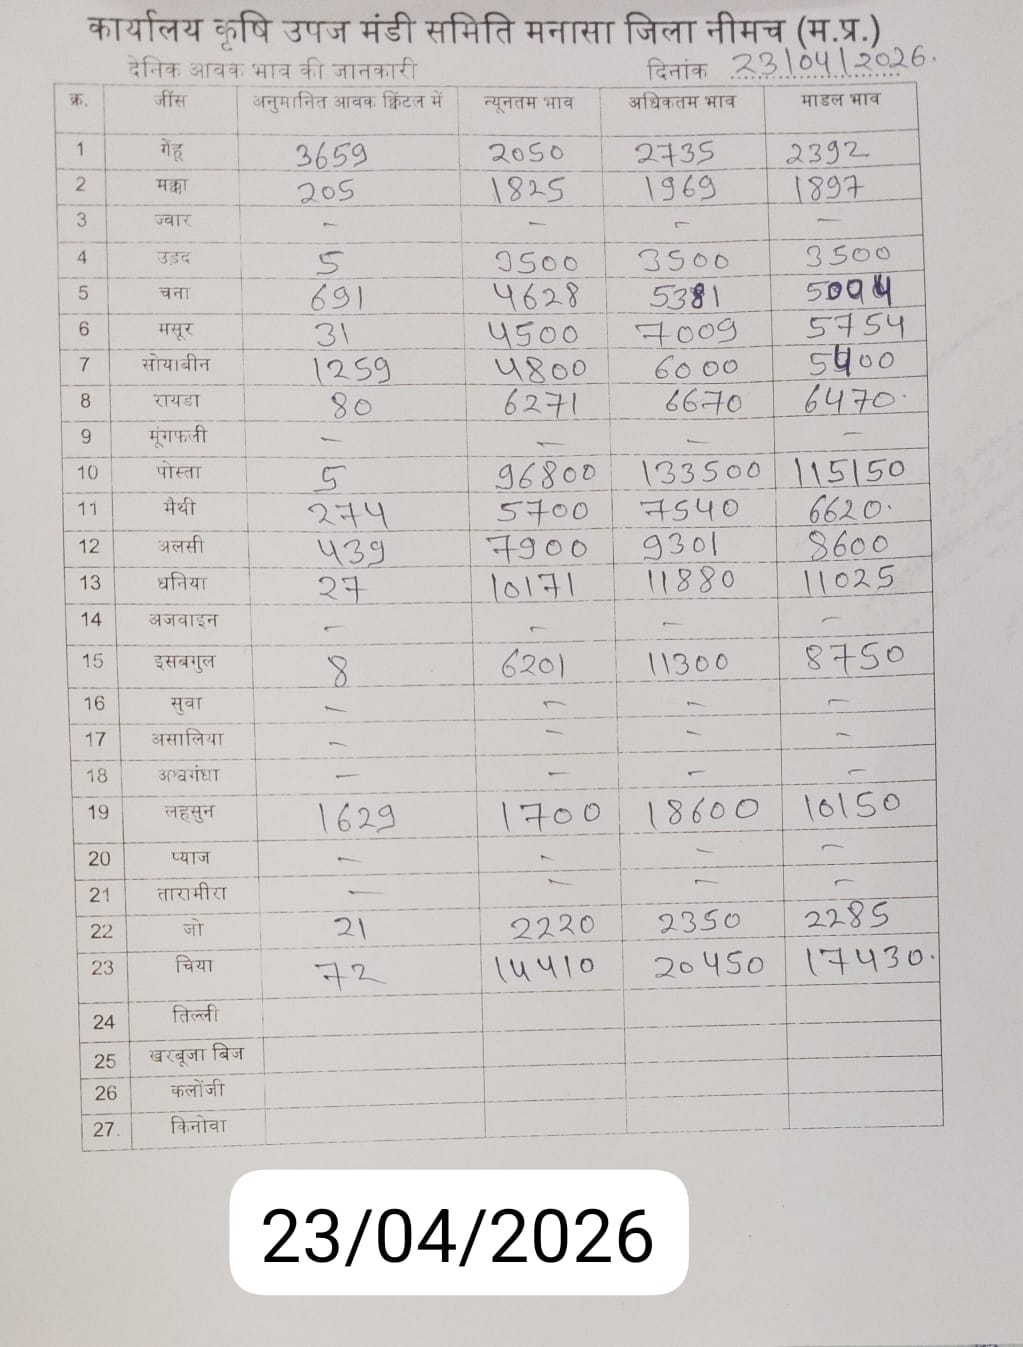 कार्यालय कृषि उपज मंडी समिति मनासा जिला नीमच (म.प्र.)
दैनिक आवक भाव की जानकारी दिनांक 23/04/2026.
क्र. जींस अनुमानित आवक क्विंटल में न्यूनतम भाव अधिकतम भाव माडल भाव
1 गेंहू 3659 2050 2735 2392
2 मक्का 205 1825 1969 1897
3 ज्वार - - - -
4 उड़द 5 3500 3500 3500
5 चना 691 4628 5381 5004
6 मसूर 31 4500 7009 5754
7 सोयाबीन 1259 4800 6000 5400
8 रायडा 80 6271 6670 6470.
9 मूंगफली - - - -
10 पोस्ता 5 96800 133500 115150
11 मैथी 274 5700 7540 6620.
12 अलसी 439 7900 9301 8600
13 धनिया 27 10171 11880 11025
14 अजवाइन - - - -
15 इसबगुल 8 6201 11300 8750
16 सुवा - - - -
17 असालिया - - - -
18 अश्वगंधा - - - -
19 लहसुन 1629 1700 18600 10150
20 प्याज - - - -
21 तारामीरा - - - -
22 जो 21 2220 2350 2285
23 चिया 72 14410 20450 17430.
24 तिल्ली
25 खरबूजा बिज
26 कलोंजी
27. किनोवा
23/04/2026